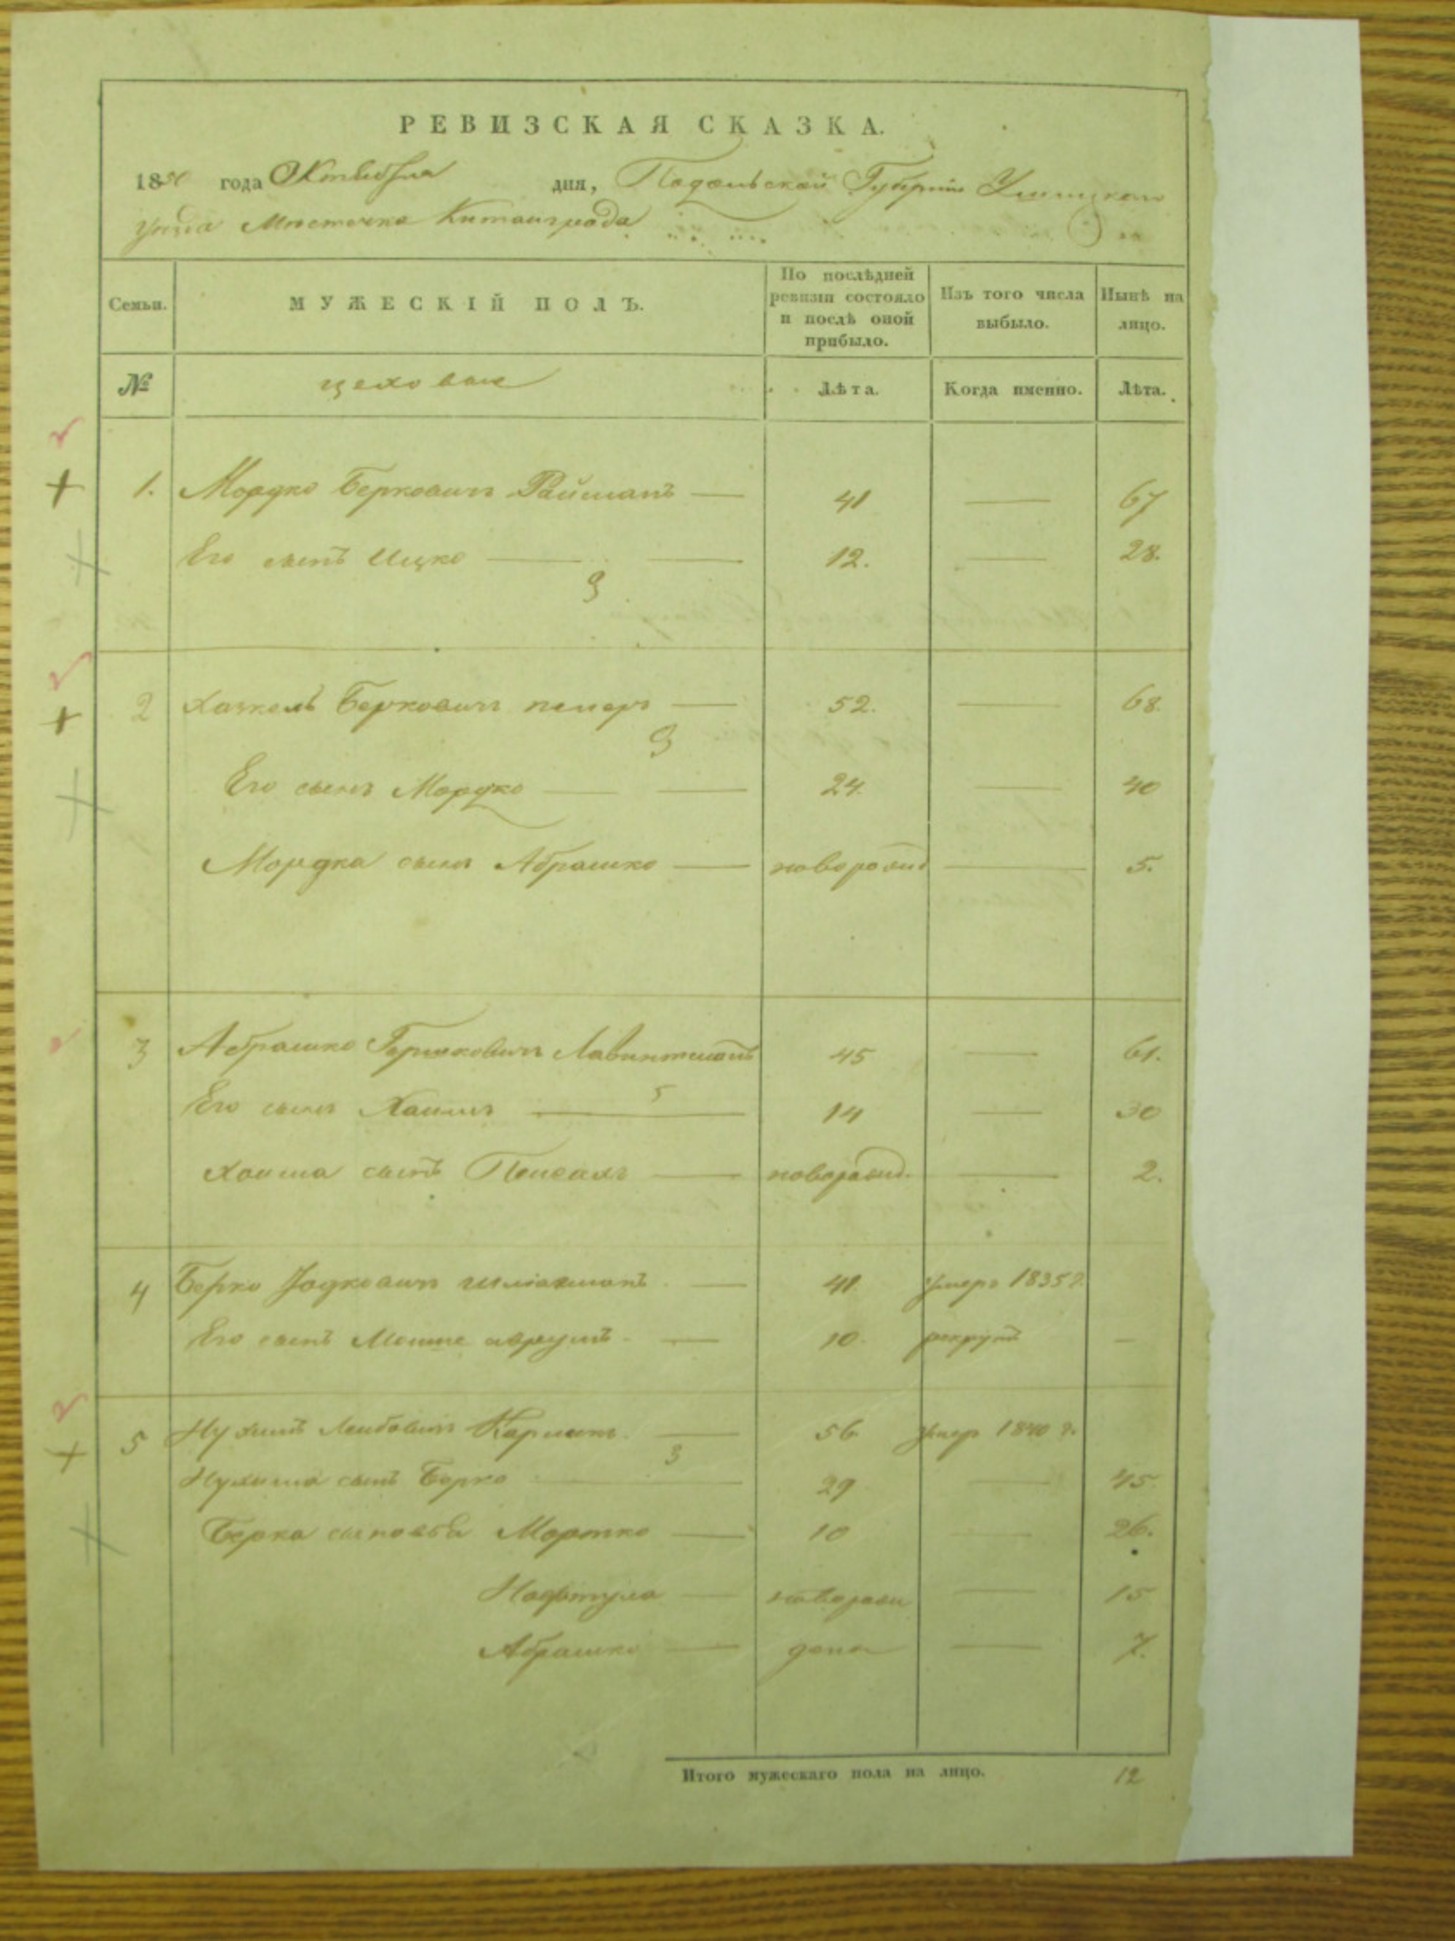 РЕВИЗСКАЯ СКАЗКА.
1850 года Октября дня, Подольской Губернии Ушицкого
уезда Местечка Китайгрода
Семьи. МУЖЕСКІЙ ПОЛЪ. По послѣдней ревизіи состояло и послѣ оной прибыло. Изъ того числа выбыло. Нынѣ на лицо.
№ цеховые Лѣта. Когда именно. Лѣта.
1. Мордко Беркович Райшанъ — 41 — 67
Его сынъ Ицко — — 12. — 28.
2 Хаскель Беркович — 52. — 68.
Его сынъ Мордко — — 24. — 40
Мордка сынъ Абрашко — новорожд — 5.
3 Абрашко Гершкович Лавинтманъ 45 — 61.
Его сынъ Хаимъ — 14 — 30
Хаима сынъ Пейсахъ — новорожд. — 2.
4 Берко — 41 умеръ 1835 г.
Его сынъ Мошке — 10. рекрутъ —
5 Нухимъ Лейбович — 56 умер 1840 г.
3
Нухима сынъ Берко — 29 — 45
Берка сыновья Мортко — 10 — 26.
Нафтула — новорож — 15
Абрашко — — 7.
Итого мужескаго пола на лицо. 12